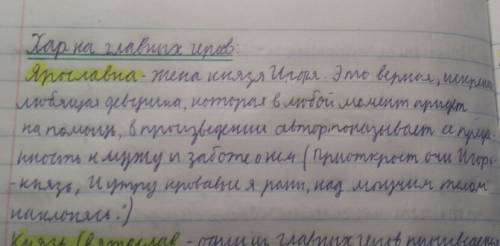 Хар на главных геров:
Ярославна - жена князя Игоря. Это верная, искрен
любящая девушка, которая в любой момент придет
на помощь, в произведении автор показывает ее
ность к мужу и заботе о нем (Приоткроет очи Игорь
-князь, И утру кровавые я раны, над могучим телом
наклонясь.")
Князь Святослав - один из главных геров произведения